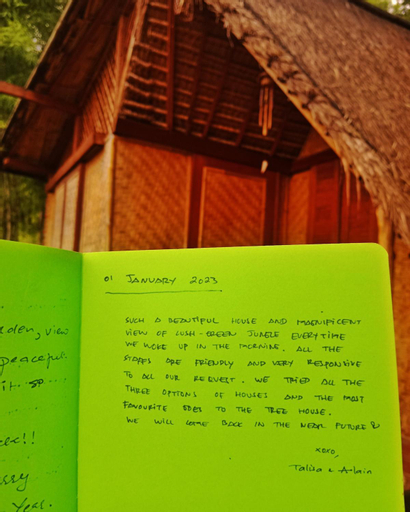 rden, view
peaceful
it so
ek!!
ssy
Years.
01 JANUARY 2023
SUCH A BEAUTIFUL HOUSE AND MAGNIFICENT
VIEW OF LUSH-GREEN JUNGLE EVERYTIME
WE WOKE UP IN THE MORNING. ALL THE
STAFFS ARE FRIENDLY AND VERY RESPONSIVE
TO ALL OUR REQUEST. WE TRIED ALL THE
THREE OPTIONS OF HOUSES AND THE MOST
FAVOURITE GOES TO THE TREE HOUSE.
WE WILL COME BACK IN THE NEAR FUTURE
XOXO,